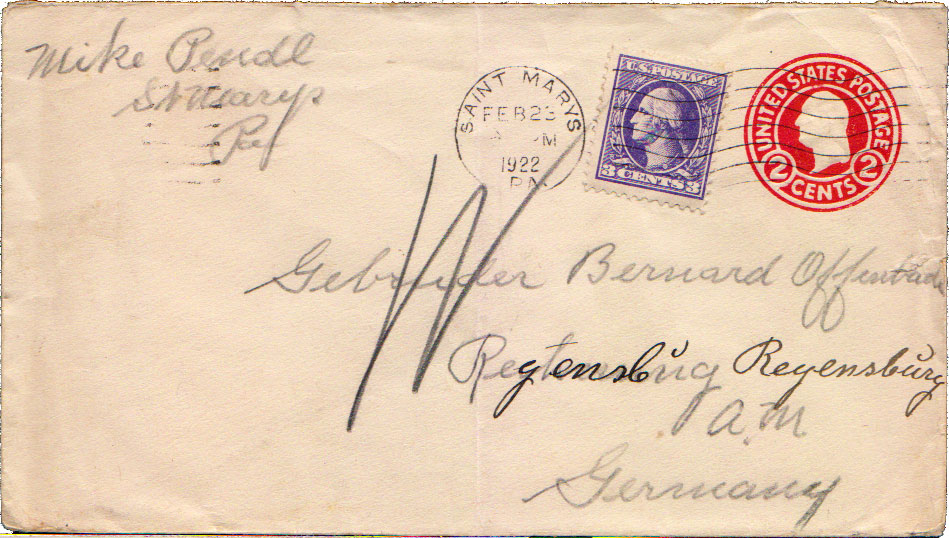 Mike Pendl
St Marys
Pa
SAINT MARYS
FEB 23
PM
1922
PA
U.S. POSTAGE
3 CENTS 3
UNITED STATES POSTAGE
2 CENTS 2
Gebruder Bernard
Regensburg
a. M
Germany